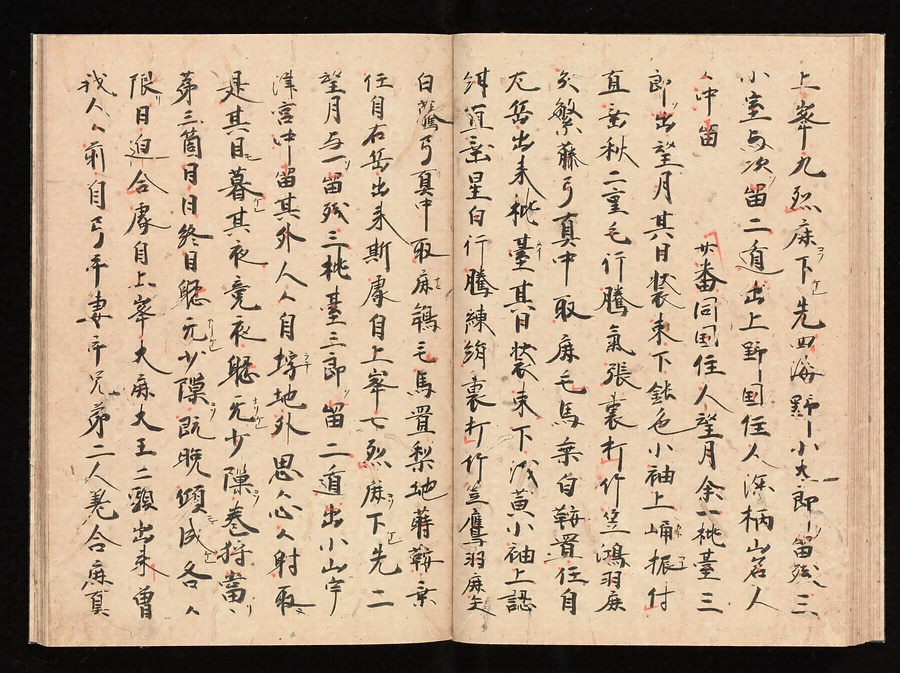 上峯九烈麻下先四海野小太郎笛残三
小室与次笛二逎出上野国住人深柄山宕人
人中笛 廿番同国住人望月余一桃臺三
郎出望月其日装束下鈍色小袖上 振付
直垂秋二重毛行騰氣張裏打竹笠鴻羽麻
矢繁藤弓真中取麻毛馬葉白鞍置任自
尤岳出来桃臺其日装束下浅黄小袖上認
直垂星白行騰練絹裏打竹笠鷹羽麻矢
白 弓真中取麻鴾毛馬置梨地蒔鞍乗
任自右岳出来斯處自上峯七烈麻下先二
望月与一笛残三桃臺三郎笛二逎出小山宇
津宮中笛其外人人自 地外思心人射取
是其日暮其夜竟夜聴元少隙巻狩當
第三箇日日終日聴元少隙既晩頃成各人
限日迫合處自上峯大麻大王二頭出来曽
我人人前自弓手妻手兄弟二人 合麻真